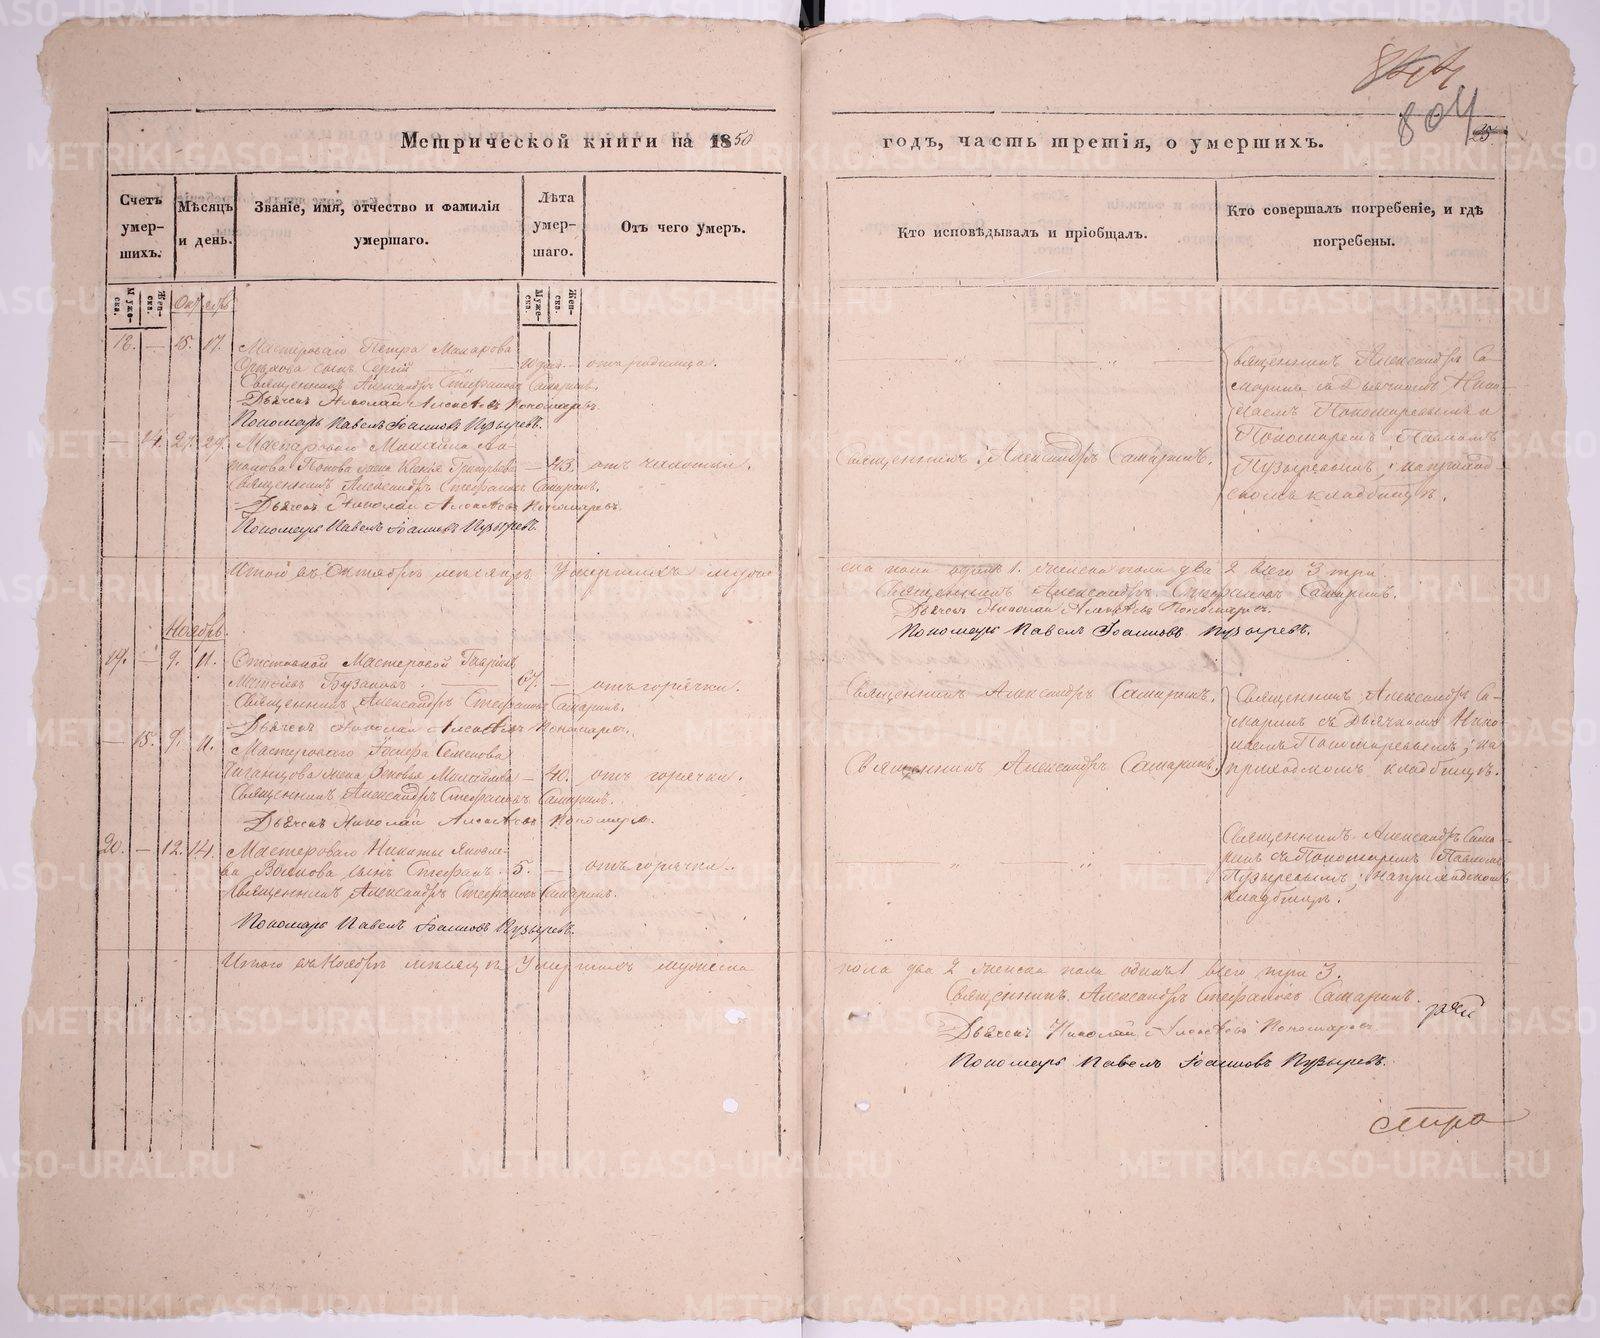 844
804
25
Метрической книги на 1850
годъ, часть третія, о умершихъ.
Счетъ умер-
шихъ.
Мѣсяцъ
и день.
Званіе, имя, отчество и фамилія
умершаго.
Лѣта
умер-
шаго.
Отъ чего умеръ.
Кто исповѣдывалъ и пріобщалъ.
Кто совершалъ погребеніе, и гдѣ
погребены.
Муже-
ска.
Жен-
ска.
Октябрь
Муже-
ска.
Жен-
ска.
18. — 15. 17. Мастероваго Петра Макарова
сынъ Сергій — отъ родимца.
Священникъ Александръ Стефановъ Самаринъ.
Дьячекъ Николай Алексѣевъ Пономаревъ.
Пономарь Павелъ Іоанновъ Пузыревъ.
Священникъ Александръ Са-
маринъ съ Дьячкомъ Нико-
лаемъ Пономаревымъ и
Пономаремъ Павломъ
Пузыревымъ; на приход-
скомъ кладбищѣ.
— 14. 27. 29. Мастероваго Михаила
Попова жена Ксенія Григорьева — 43. отъ чахотки.
Священникъ Александръ Самаринъ.
Священникъ Александръ Стефановъ Самаринъ.
Дьячекъ Николай Алексѣевъ Пономаревъ.
Пономарь Павелъ Іоанновъ Пузыревъ.
Итого въ Октябрѣ мѣсяцѣ Умершихъ муже
ска пола одинъ 1. женска пола два 2 всего 3 три.
Священникъ Александръ Стефановъ Самаринъ.
Дьячекъ Николай Алексѣевъ Пономаревъ.
Пономарь Павелъ Іоанновъ Пузыревъ.
Ноябрь.
19. — 9. 11. Отставной Мастеровой Гавріилъ
67. — отъ горячки.
Священникъ Александръ Самаринъ.
Священникъ Александръ Стефановъ Самаринъ.
Дьячекъ Николай Алексѣевъ Пономаревъ.
Священникъ Александръ Са-
маринъ съ Дьячкомъ Нико-
лаемъ Пономаревымъ; на
приходскомъ кладбищѣ.
— 15. 9. 11. Мастероваго Іосифа Семенова
жена Зиновья Михайлова — 40. отъ горячки.
Священникъ Александръ Самаринъ.
Священникъ Александръ Стефановъ Самаринъ.
Дьячекъ Николай Алексѣевъ Пономаревъ.
20. — 12. 14. Мастероваго Никиты Яковле-
ва сынъ Стефанъ. 5. — отъ горячки.
Священникъ Александръ Стефановъ Самаринъ.
Пономарь Павелъ Іоанновъ Пузыревъ.
Священникъ Александръ Сама-
ринъ съ Пономаремъ Павломъ
Пузыревымъ; на приходскомъ
кладбищѣ.
Итого въ Ноябрѣ мѣсяцѣ Умершихъ мужеска
пола два 2 женска пола одинъ 1 всего три 3.
Священникъ Александръ Стефановъ Самаринъ.
Дьячекъ Николай Алексѣевъ Пономаревъ
Пономарь Павелъ Іоанновъ Пузыревъ.
METRIKI.GASO-URAL.RU